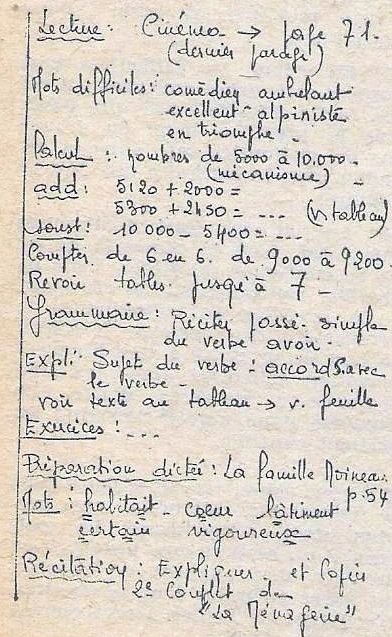 Lecture : Cinéma → page 71.
(dernier parag.)
Mots difficiles : comédien ambulant
excellent alpiniste
en triomphe.
Calcul : nombres de 5000 à 10.000.
(mécanisme)
add : 5120 + 2000 =
5300 + 2450 = ... (v. tableau)
soust : 10 000 - 5400 = ...
Compter de 6 en 6. de 9000 à 9200.
Revoir tables jusqu'à 7 -
Grammaire : Réciter passé simple
du verbe avoir.
Expli : Sujet du verbe : accord S. avec
le verbe -
voir texte au tableau → v. feuille
Exercices : ...
Préparation dictée : La famille Moineau.
p.54
Mots : habitait - coeur bâtiment
certain vigoureux
Récitation : Expliquer et Copier
2e Couplet de
"La Ménagerie"